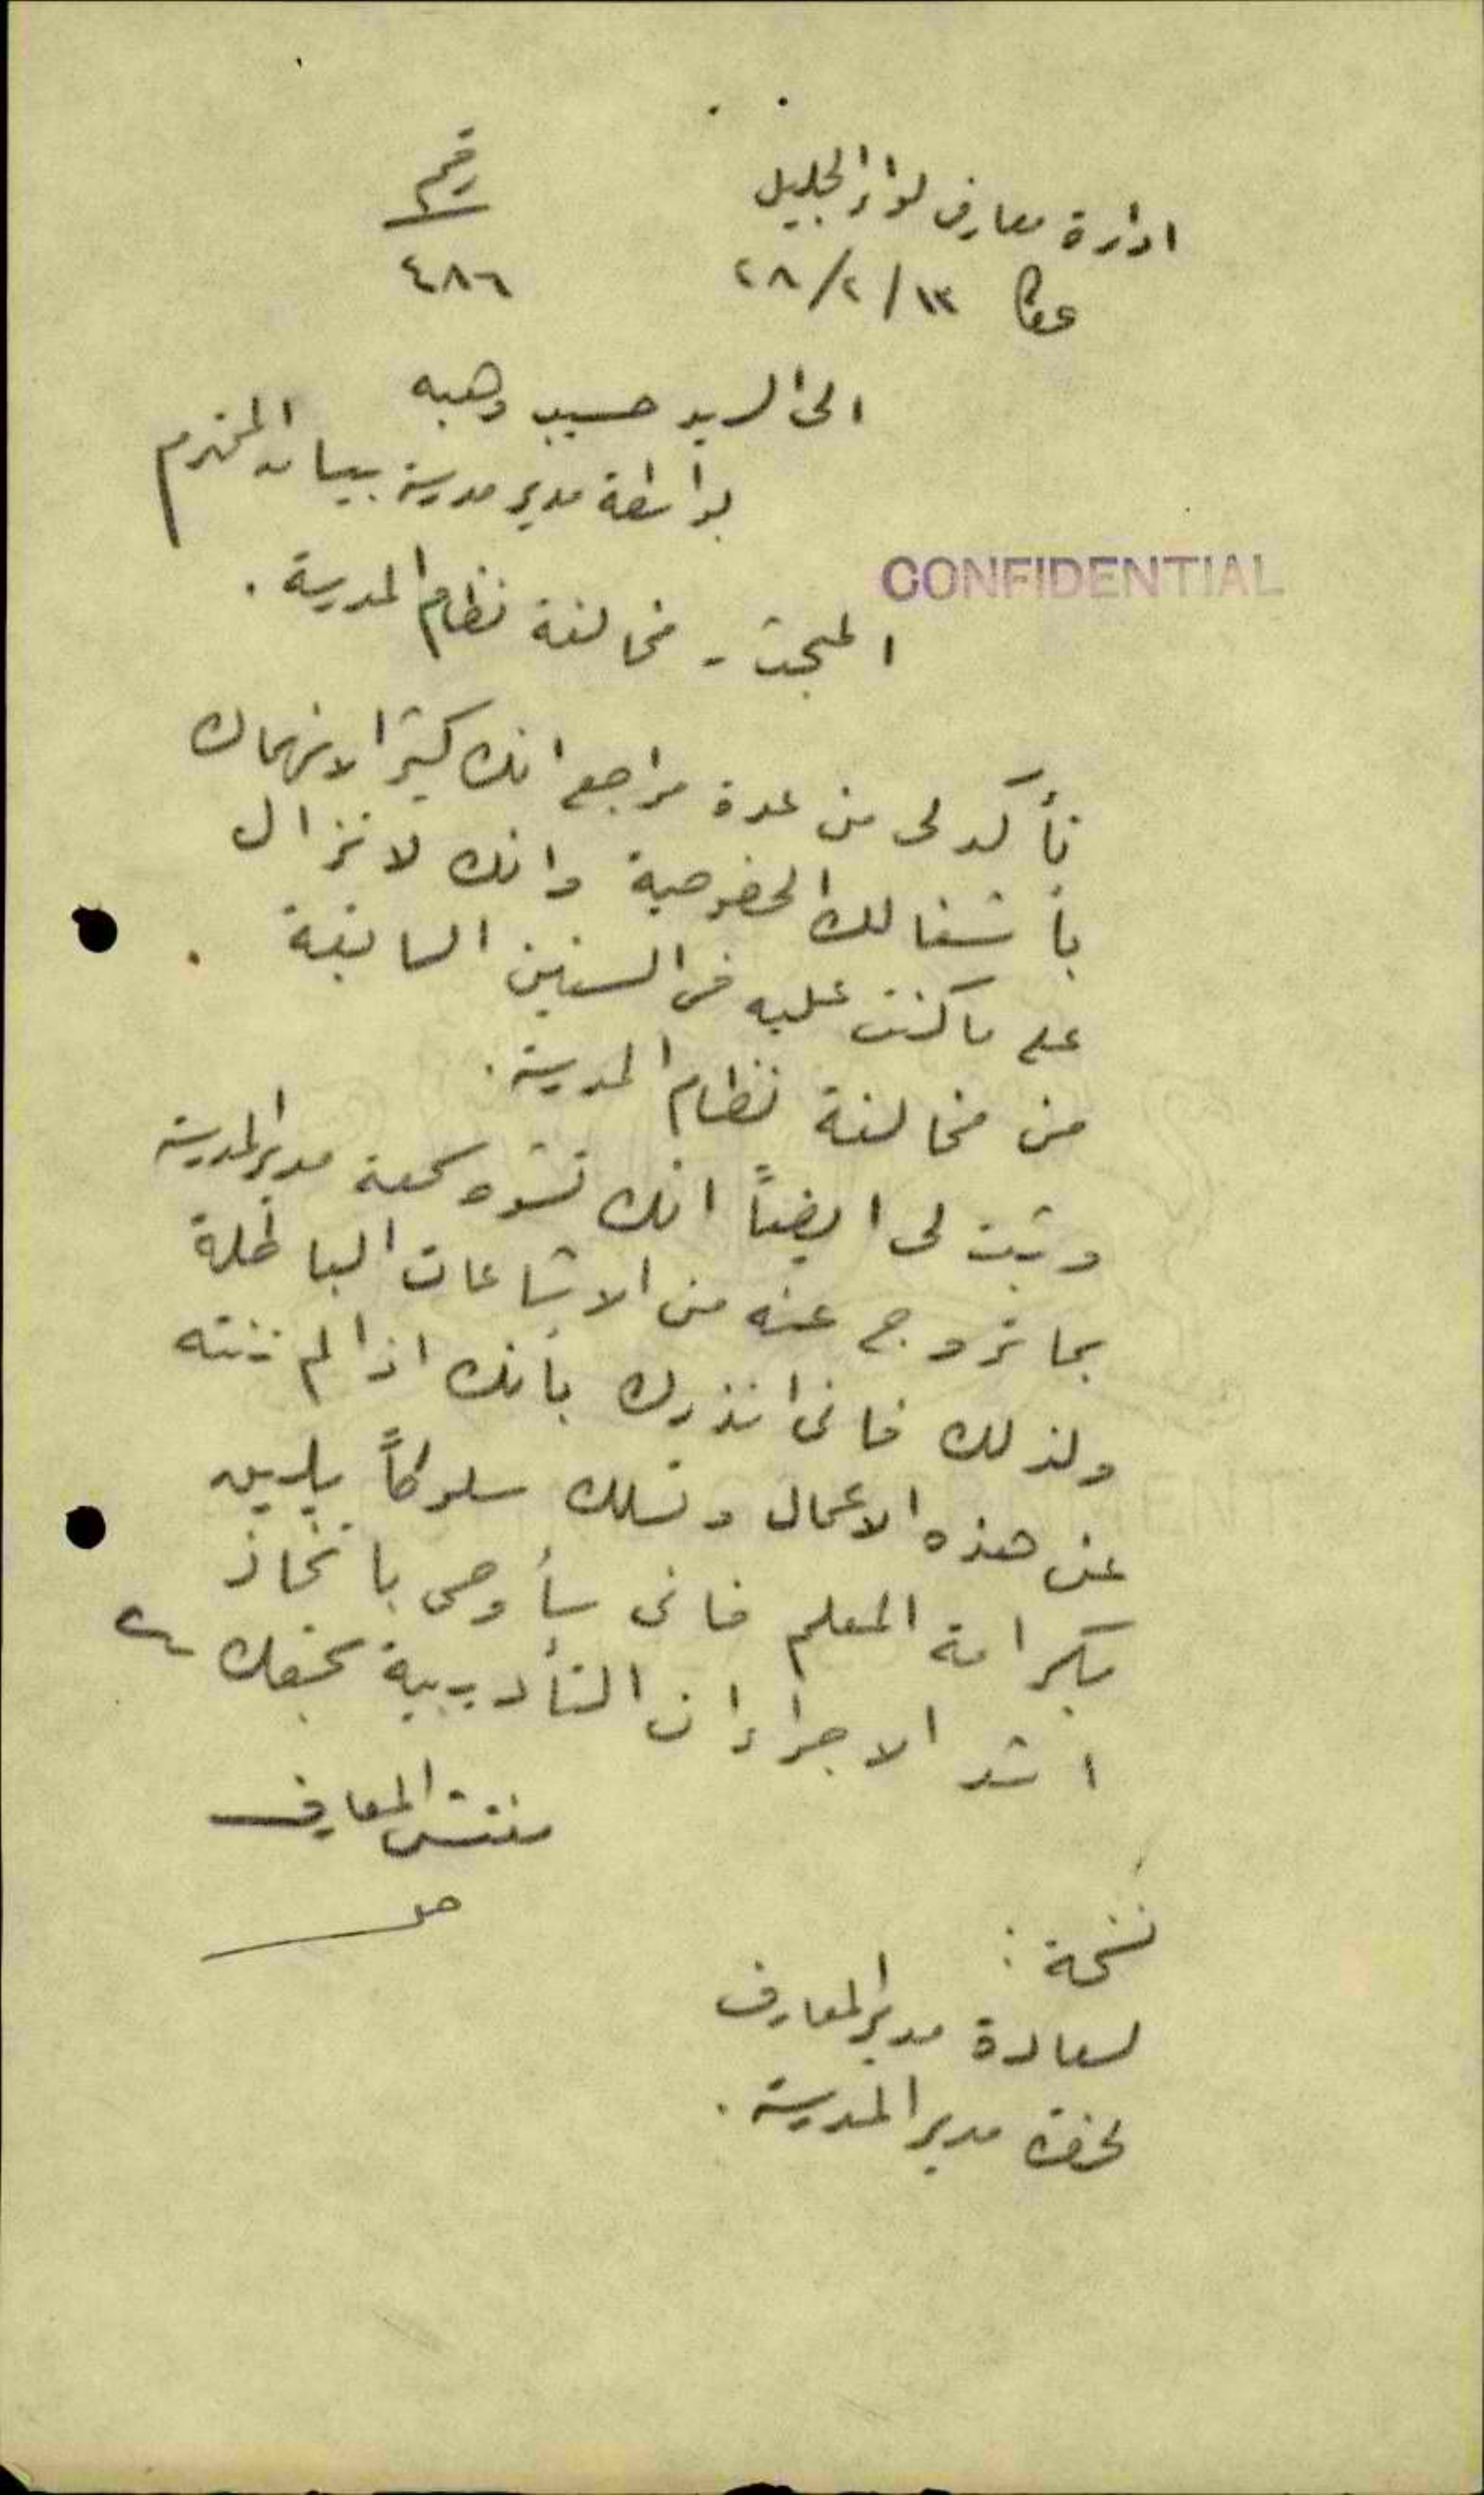 ادارة معارف لواء الجليل
رقم
عكا ١٣/٢/٢٨
٤٨٦
الى السيد حسيب وهبه
بواسطة مدير مدرسة بيسان المحترم
CONFIDENTIAL
المبحث - مخالفة نظام المدرسة .
تأكد لى من عدة مراجع انك كثير الانهماك
بأشغالك الخصوصية وانك لا تزال
على ما كنت عليه فى السنين السابقة
من مخالفة نظام المدرسة .
وثبت لى ايضاً انك تشوه سمعة مدير المدرسة
بما تروج عنه من الاشاعات الباطلة
ولذلك فانى انذرك بأنك اذا لم تنته
عن هذه الاعمال وتسلك سلوكاً يليق
بكرامة المعلم فانى سأوصى باتخاذ
اشد الاجراءات التأديبية بحقك
مفتش المعارف
نسخة :
لسعادة مدير المعارف
لحضرة مدير المدرسة .